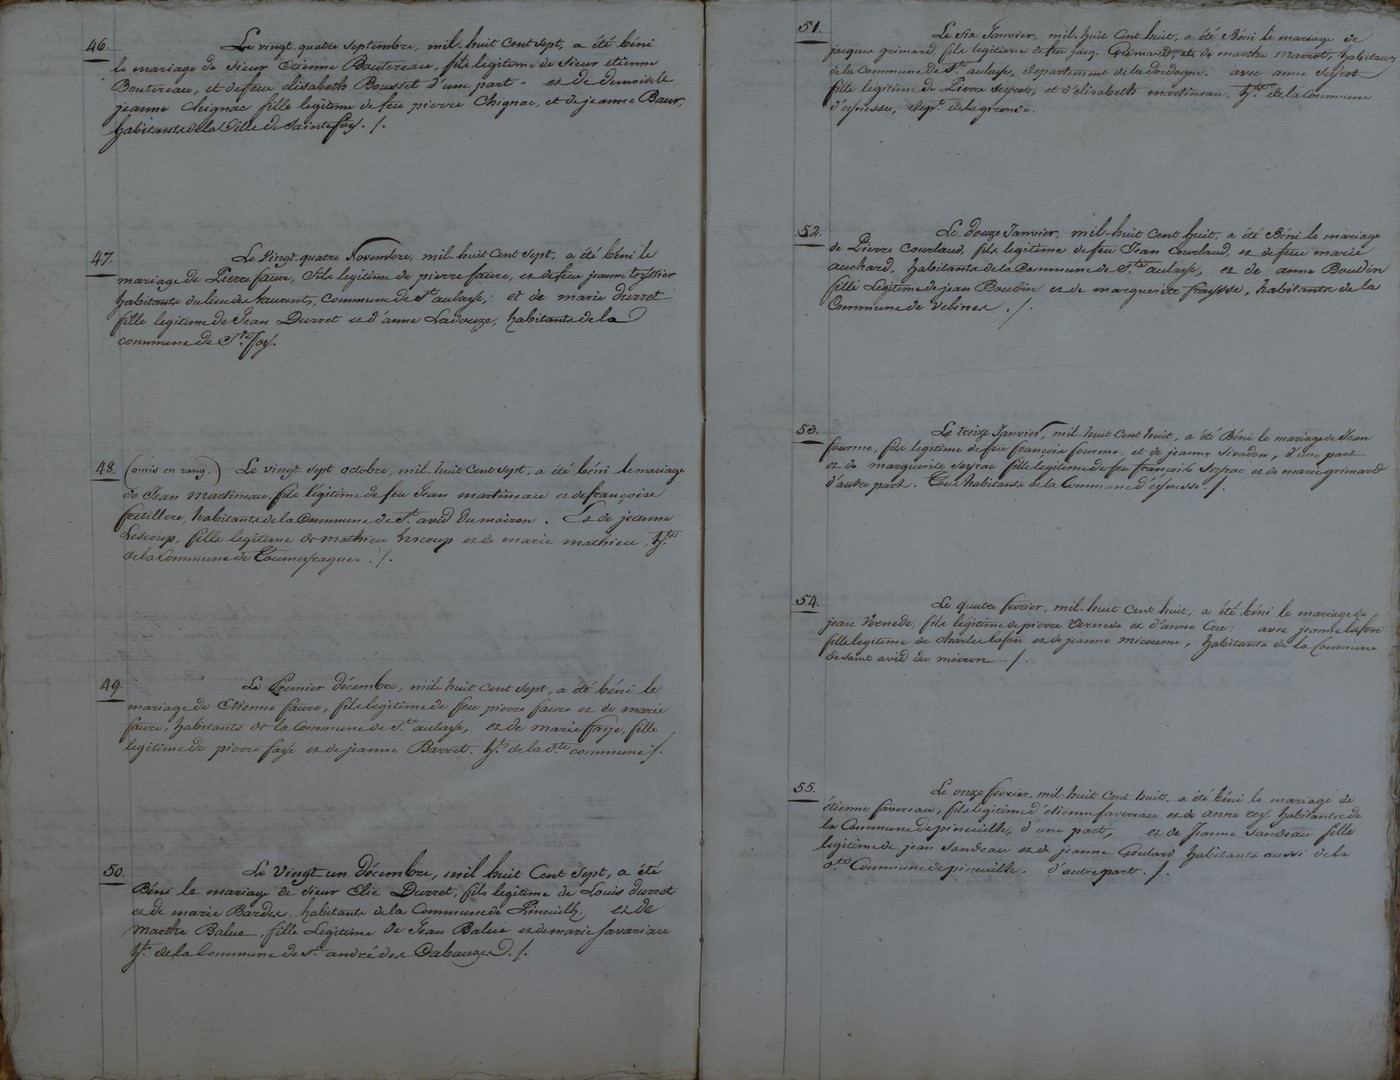 46. Le vingt quatre septembre, mil-huit Cent sept, a été béni
le mariage de Sieur Etienne Boutereau, fils legitime de Sieur etienne
Boutereau, et de feue elisabeth Bousset d'une part. et de demoiselle
jeanne Chignac fille legitime de feu pierre Chignac, et de jeanne Baur,
habitants de la Ville de Sainte foy. /.
47. Le Vingt quatre Novembre, mil-huit Cent sept, a été béni le
mariage de Pierre faure, fils legitime de pierre faure, et de feue jeanne
habitants du lieu des Laurents, Commune de St. aulaye; et de marie durret
fille legitime de Jean Durret et d'anne Ladouze, habitants de la
commune de Ste. foy.
48. (omis en rang.) Le vingt sept octobre, mil-huit Cent sept, a été béni le mariage
de Jean martineau, fils légitime de feu Jean martineau et de françoise
fretillere, habitants de la Commune de St. avid du moiron. Et de jeanne
Lescoup, fille legitime de mathieu Lescoup et de marie mathieu, hts.
de la Commune de Tourneyragues. /.
49. Le Premier décembre, mil-huit Cent sept, a été béni le
mariage de Etienne faure, fils legitime de feu pierre faure et de marie
faure, habitants de la Commune de St. aulaye, et de marie faye, fille
legitime de pierre faye et de jeanne Barret. hts. de la de. commune /.
50. Le Vingt un décembre, mil huit Cent sept, a été
Béni le mariage de Sieur Elie Durret, fils legitime de Louis durret
et de marie Bardes, habitants de la Commune de Pineuilh, et de
marthe Balue, fille Legitime de Jean Balue et de marie favariau
hts. de la Commune de St. andré des Cabauzes. /.
51. Le Six Janvier, mil-huit Cent huit, a été Béni le mariage de
jacques grimard, fils legitime de feu jacq. Grimard, et de marthe marrot, habitans
de la Commune de St. aulaye, département de la dordogne. avec anne Seyrat
fille légitime de Pierre Seyrat, et d'elisabeth martineau, hts. de la Commune
d'eynesse, dept. de la gironde.
52. Le douze Janvier, mil-huit Cent huit, a été Béni le mariage
de Pierre Courlaud, fils legitime de feu Jean Courlaud, et de feue marie
auchard, habitants de la Commune de St. aulaye, et de anne Boudin
fille Legitime de jean Boudin et de marguerite fraysse, habitants de la
Commune de Velines. /.
53. Le treize Janvier, mil-huit Cent huit, a été Béni le mariage de Jean
fourme, fils legitime de feu françois fourme, et de jeanne Sivadon, d'une part
et de marguerite Seyrac fille legitime de feu françois Seyrac et de marie grimard
d'autre part. Tous habitants de la Commune d'eynesse. /.
54. Le quatre fevrier, mil-huit Cent huit, a été béni le mariage de
jean Vernede, fils legitime de pierre Vernede et d'anne Cru: avec jeanne lafon
fille legitime de Charles lafon et de jeanne micoume, habitants de la Commune
de saint avid du moiron. /.
55. Le onze fevrier, mil-huit Cent huit, a été béni le mariage de
étienne favereau, fils legitime d'étienne favereau et de anne rey, habitants de
la Commune de pineuilh, d'une part, et de Jeanne Sandeau fille
legitime de jean Sandeau et de jeanne Goulard habitants aussi de la
de. Commune de pineuilh. d'autre part. /.